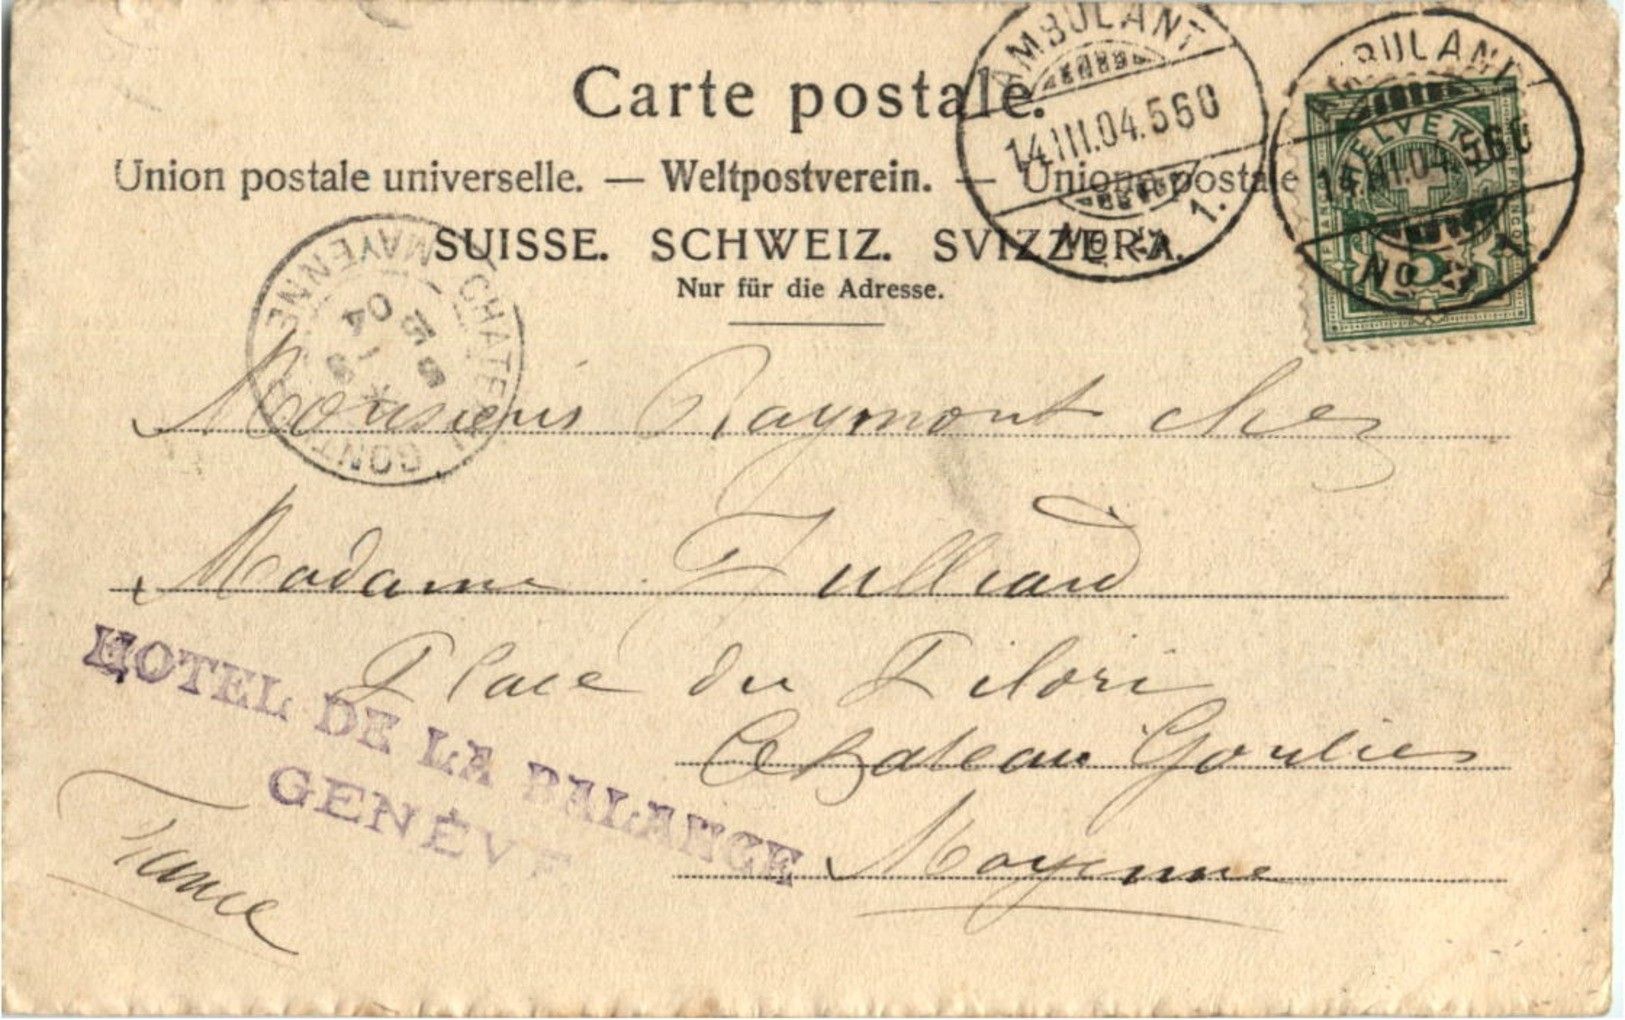 Carte postale.
Union postale universelle. — Weltpostverein. — Unione postale
SUISSE. SCHWEIZ. SVIZZERA.
Nur für die Adresse.
AMBULANT
14.III.04.560
No 1.
AMBULANT
14.III.04.560
No 1
HELVETIA
5
CHATEAU GONTIER
MAYENNE
04
Monsieur Raymont chez
Madame Julliard
Place du Pilori
Chateau Gontier
Mayenne
France
HOTEL DE LA BALANCE
GENÈVE